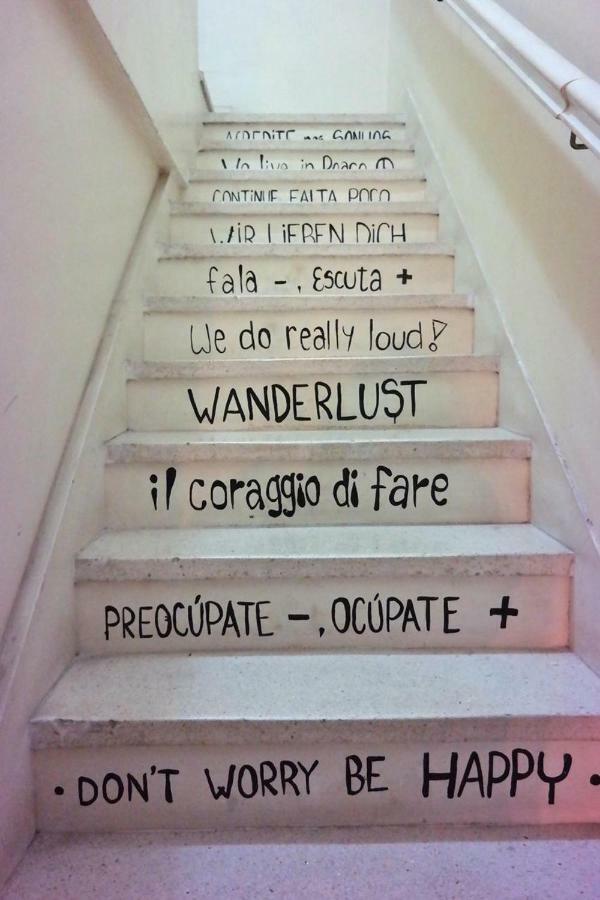 ACREDITE nos SONHOS
We live in Peace ☮
CONTINUE FALTA POCO
WiR LiEBEN DiCH
fala - , Escuta +
We do really loud!
WANDERLUST
il coraggio di fare
PREOCÚPATE - , OCÚPATE +
• DON'T WORRY BE HAPPY •